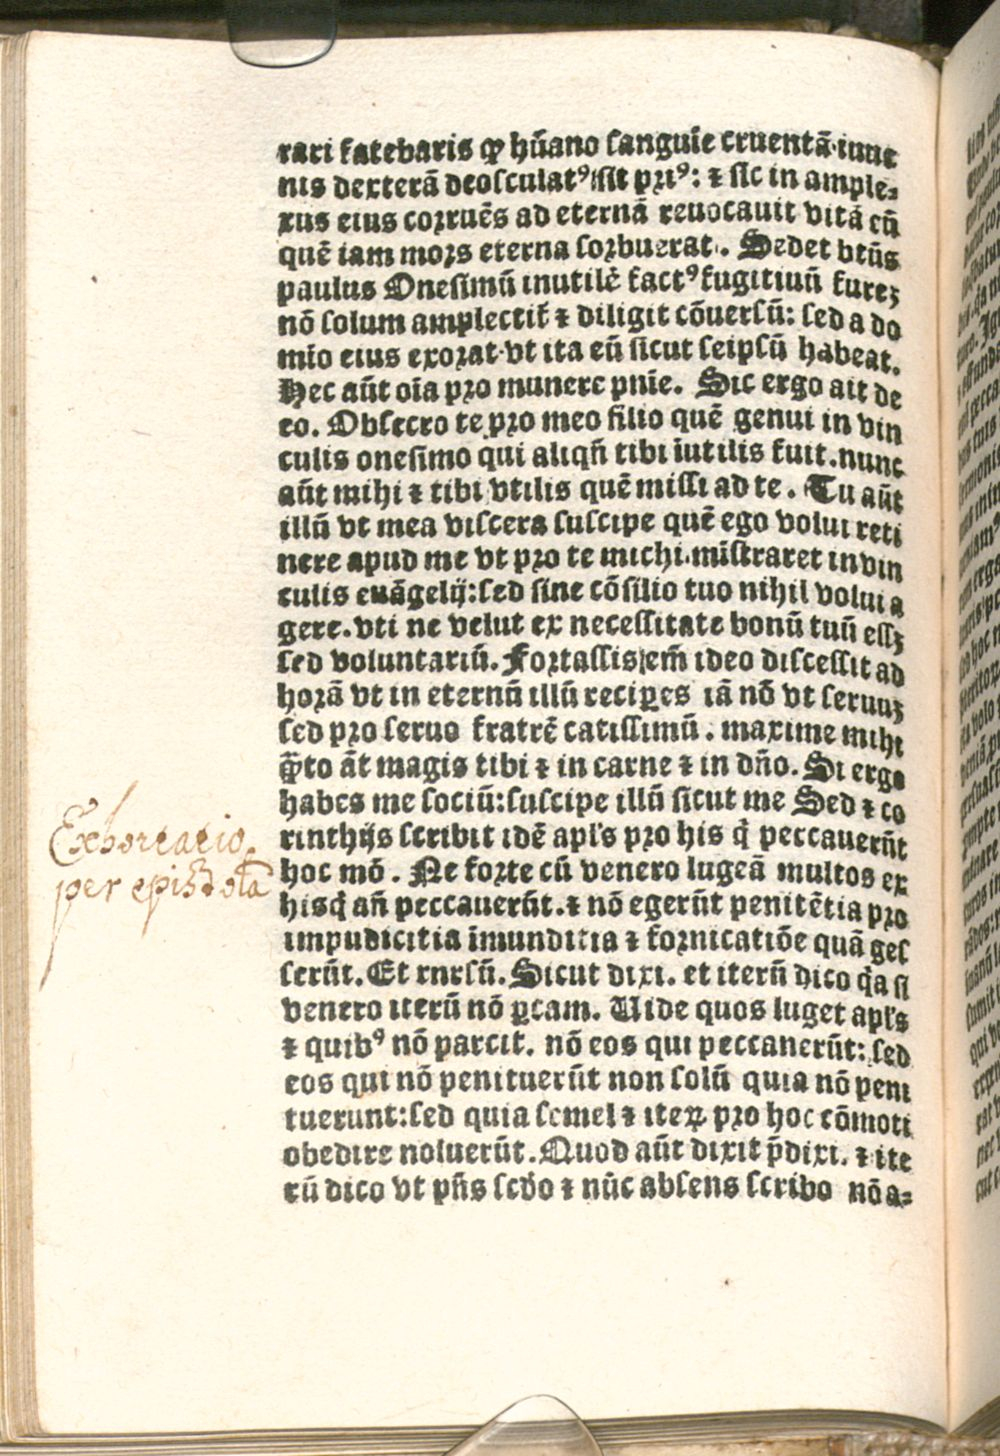 rari fatebaris ꝙ hũano sanguīe cruentã iuue
nis dexterã deosculatꝰ sit priꝰ: ⁊ sic in ample⸗
xus eius corruẽs ad eternã reuocauit vitã cũ
quẽ iam mors eterna sorbuerat. Sed et vtũs
paulus Onesimũ inutilẽ factꝰ fugitiuũ fureꝫ
nõ solum amplectit̃ ⁊ diligit cõuersũ: sed a do
mĩo eius exorat vt ita eũ sicut seipsũ habeat.
Hec aũt oĩa pro munere pnĩe. Sic ergo ait de
eo. Obsecro te pro meo filio quẽ genui in vin
culis onesimo qui aliqñ tibi iũtilis fuit. nunc
aũt mihi ⁊ tibi vtilis quẽ missi ad te. Tu aũt
illũ vt mea viscera suscipe quẽ ego volui reti
nere apud me vt pro te michi mĩstraret in vin
culis euãgelij: sed sine cõsilio tuo nihil volui a
gere. vti ne velut ex necessitate bonũ tuũ essꝫ
sed voluntariũ. Fortassis em̃ ideo discessit ad
horã vt in eternũ illũ reciꝑes iã nõ vt seruuꝫ
sed pro seruo fratrẽ catissimũ. maxime mihi
q̃to ãt magis tibi ⁊ in carne ⁊ in dño. Si ergo
habes me sociũ: suscipe illũ sicut me Sed ⁊ co
rinthijs scribit idẽ apl's pro his q̇ peccauerũt
hoc mõ. Ne forte cũ venero lugeã multos ex
hisq̇ añ peccauerũt. ⁊ nõ egerũt penitẽtia pro
impudicitia ĩmunditia ⁊ fornicatiõe quã ges
serũt. Et rursũ. Sicut dixi. et iterũ dico q̇a si
venero iterũ nõ ꝑcam. Uide quos luget apl's
⁊ quibꝰ nõ parcit. nõ eos qui peccanerũt: sed
eos qui nõ penituerũt non solũ quia nõ peni
tuerunt: sed quia semel ⁊ iteꝝ pro hoc cõmoti
obedire noluerũt. Quod aũt dixit p̃dixi. ⁊ ite
rũ dico vt pñs scdo ⁊ nũc absens scribo nõ a⸗
Exhortatio
per epistolã